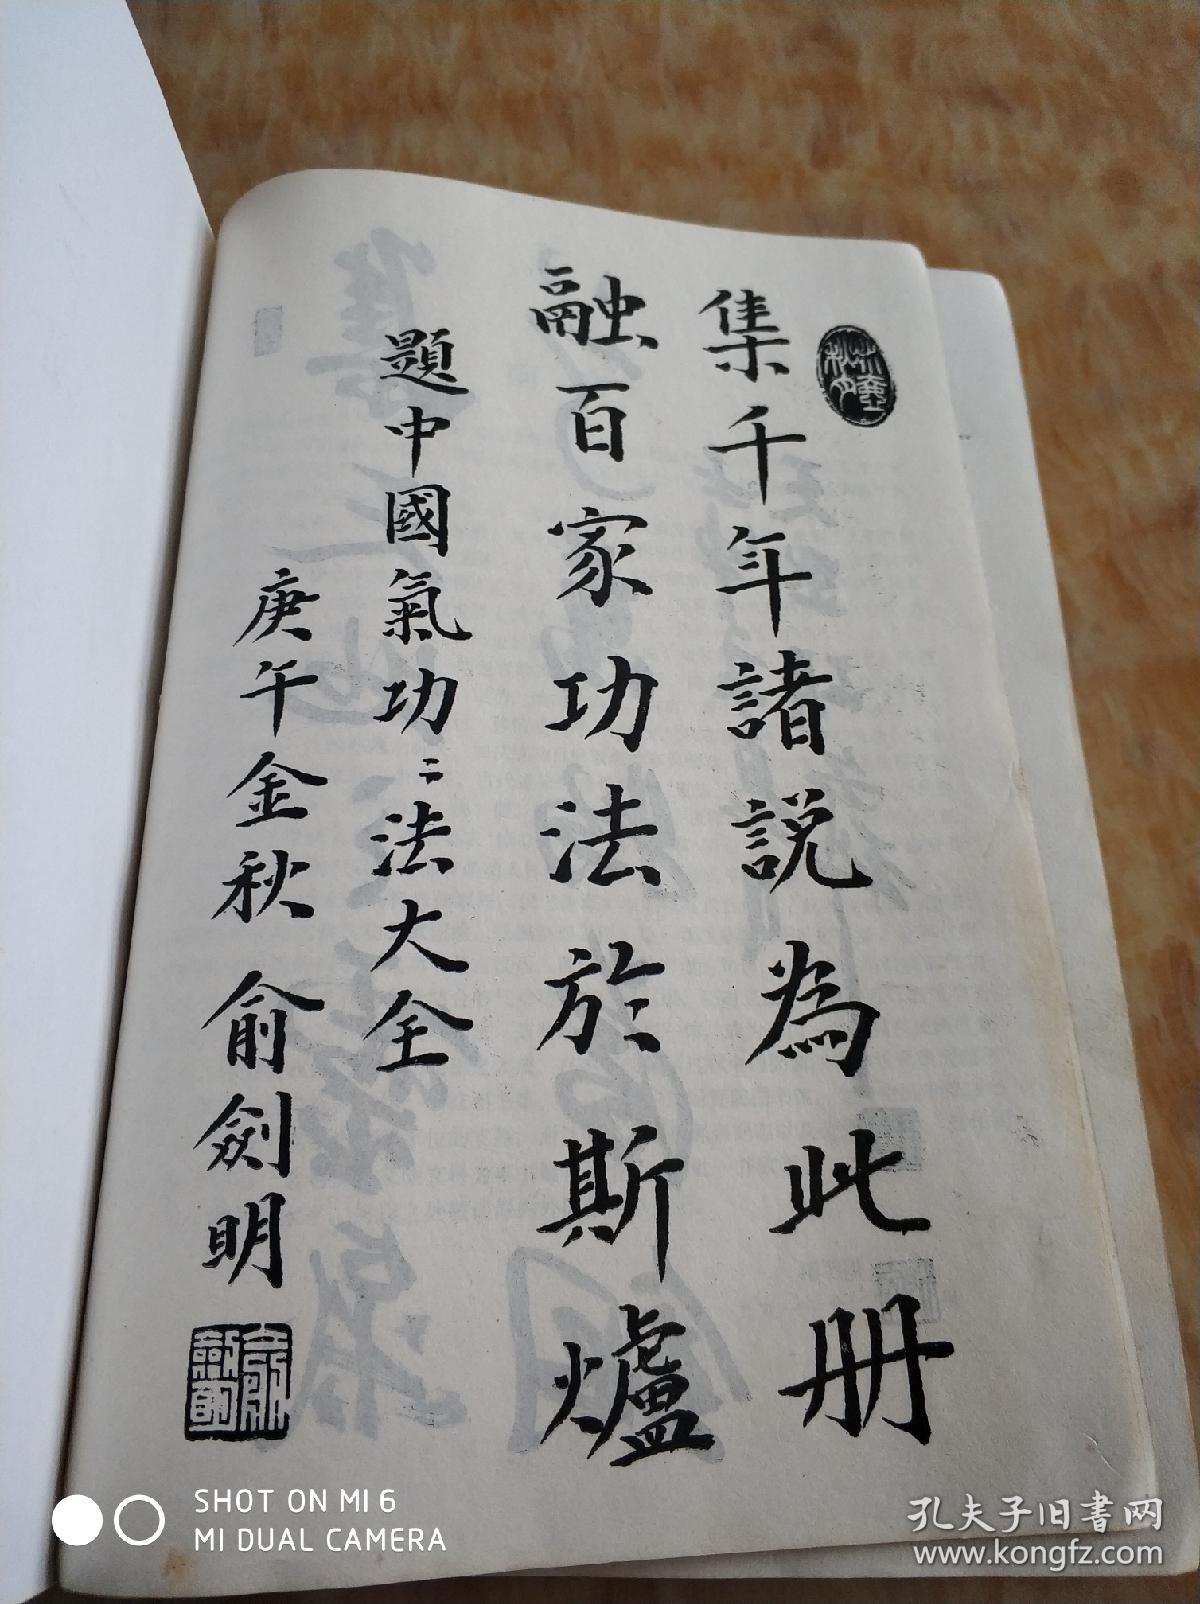 集千年諸説為此册
融百家功法於斯爐
題中國氣功〻法大全
庚午金秋 俞劍明
SHOT ON MI 6
MI DUAL CAMERA
孔夫子旧书网
www.kongfz.com